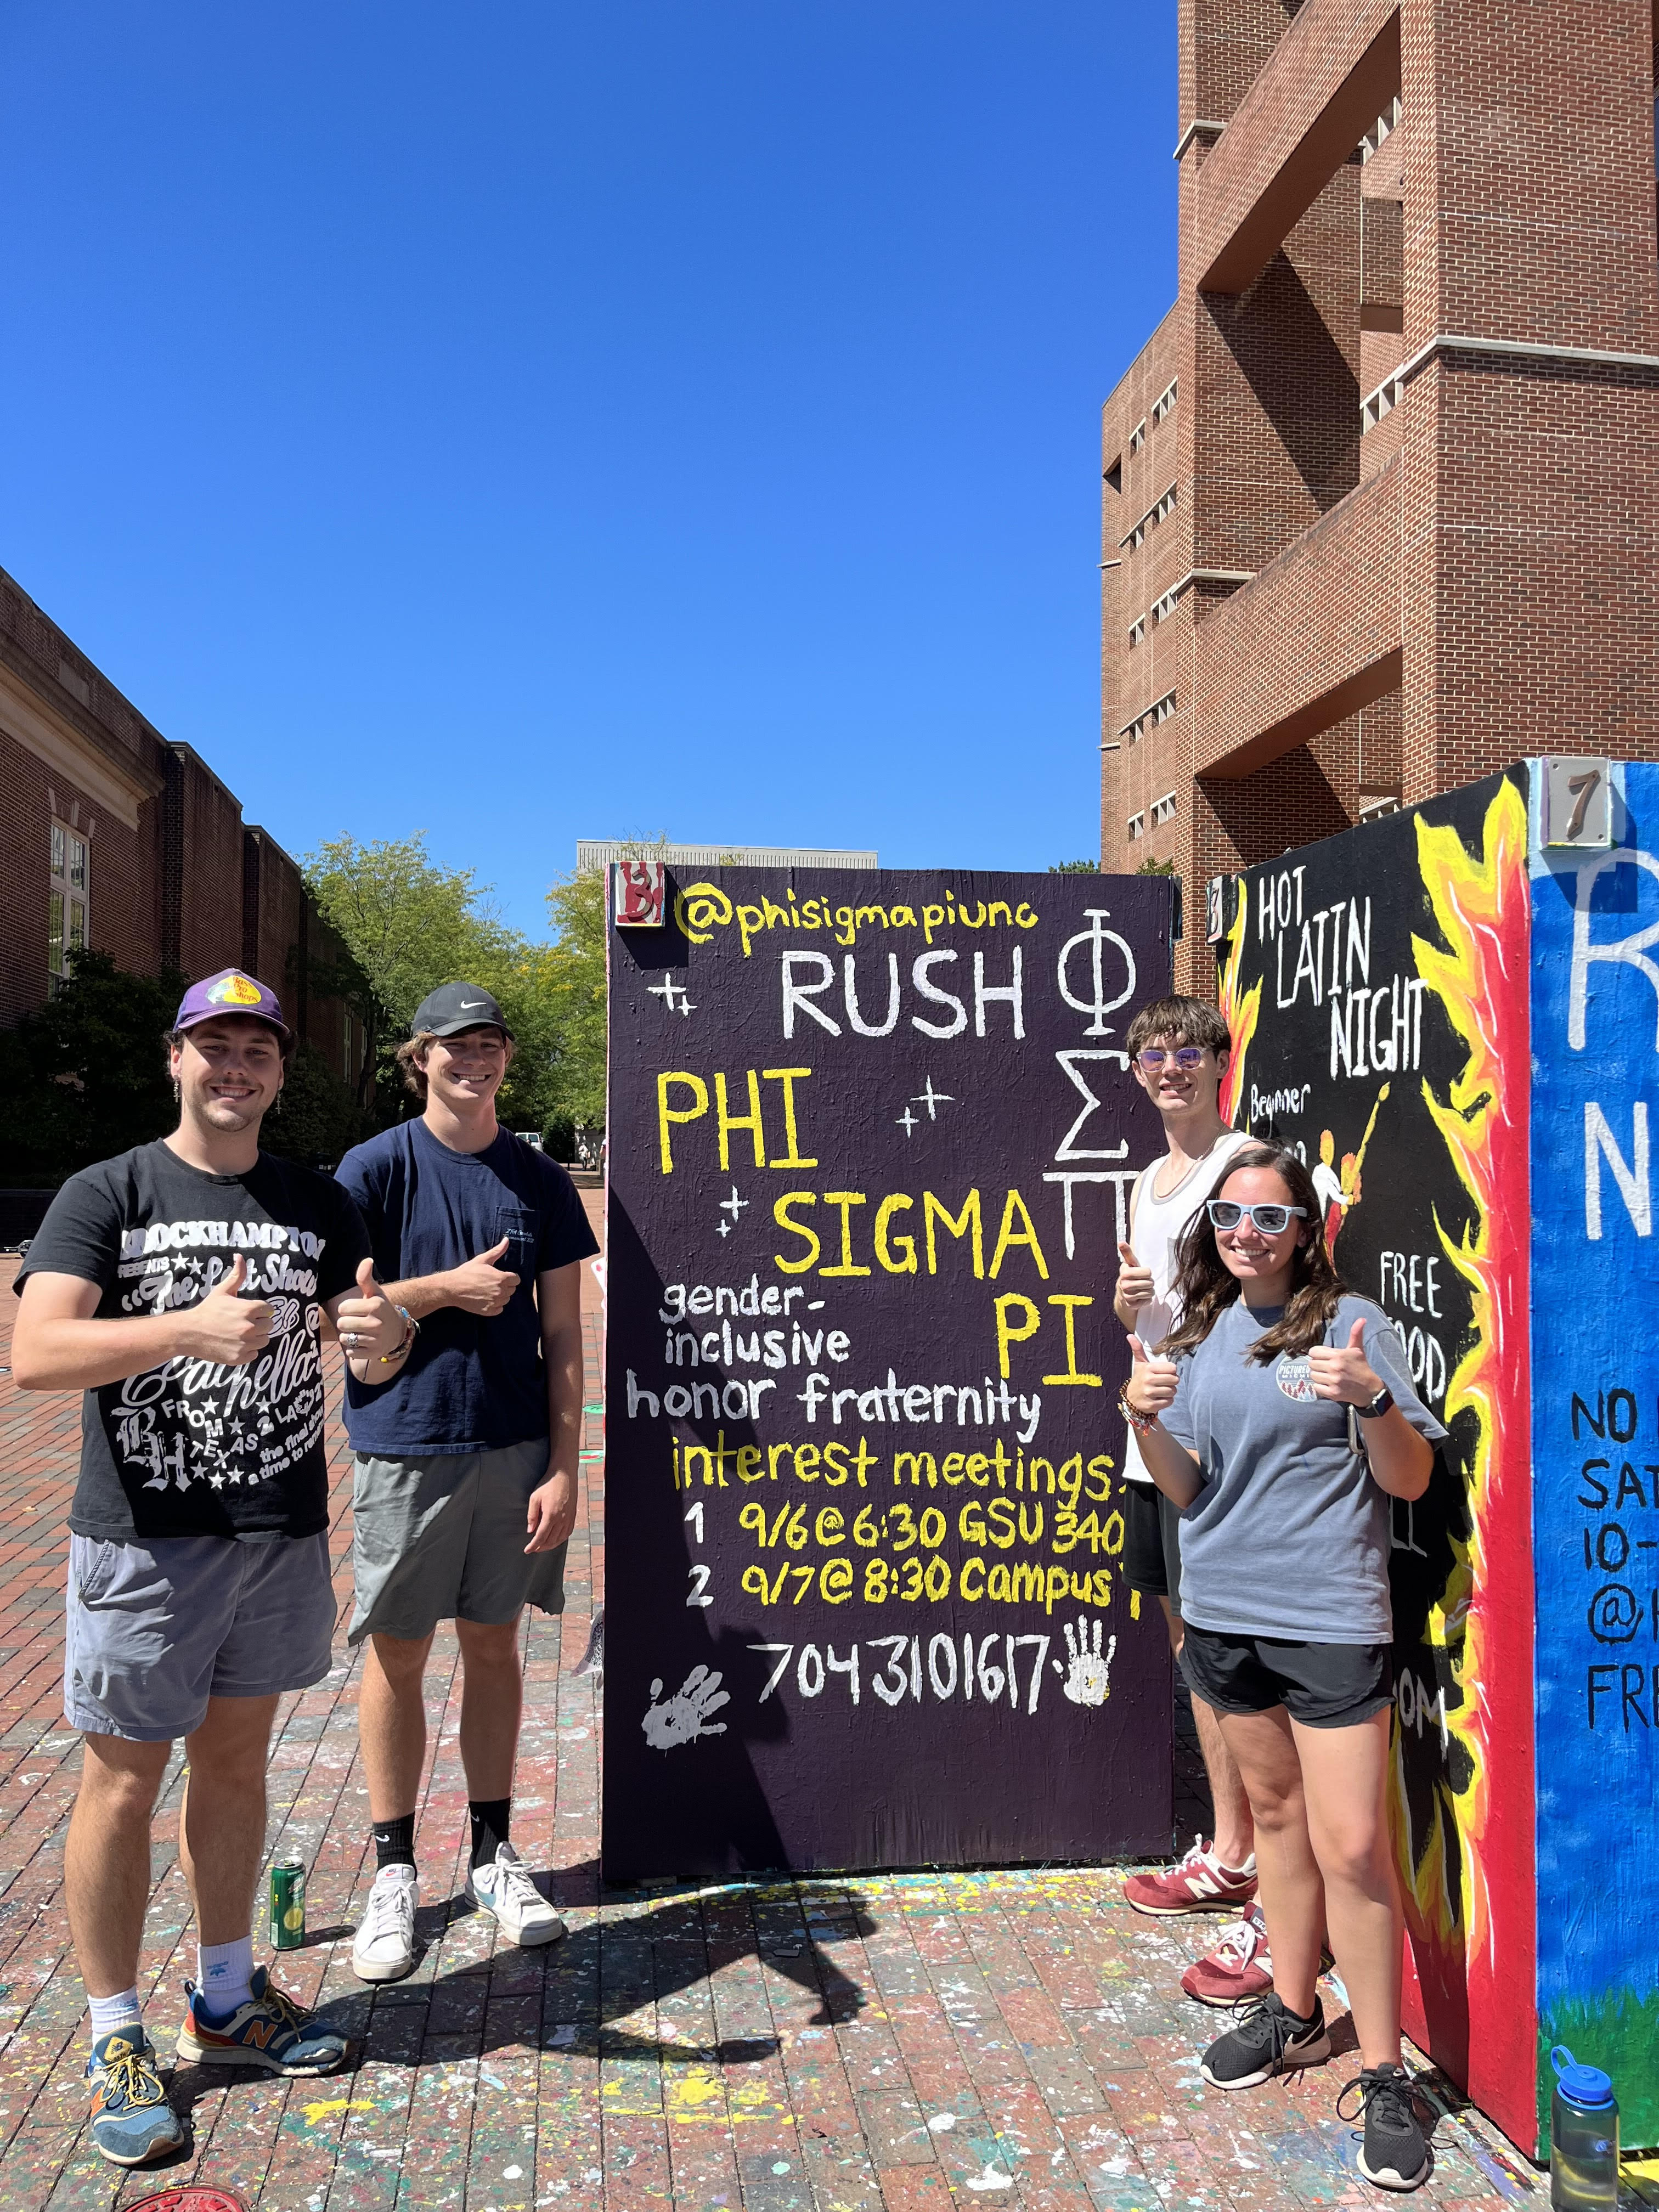 @phisigmapiunc
RUSH
ΦΣΠ
PHI
SIGMA
PI
gender-
inclusive
honor fraternity
interest meetings:
1 9/6@6:30 GSU 340
2 9/7@8:30 Campus
7043101617
HOT
LATIN
NIGHT
Beginner
FREE
7
R
N
NO
SAT
10-
@
FRE
Bass Pro
shops
BROCKHAMPTON
"The Last Show
Coachella
FROM
TEXAS 2 LA
the final show
a time to
BH
N
N